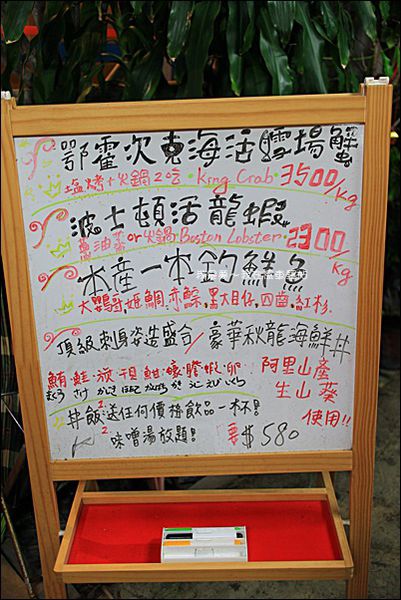 鄂霍次克海活鱷場蟹
塩烤+火鍋2吃·King Crab·3500/kg
波士頓活龍蝦
蔥油蒸 or 火鍋·Boston Lobster·2300/kg
本產一本釣鮮魚
大鸚哥.姬鯛.赤鯮.黑大目仔.四齒.紅杉.
頂級刺身姿造盛合/豪華秋龍海鮮丼
鮪·鮭·旗·干貝·魽·蝦·卵
阿里山產
生山葵
使用!!
丼飯1.送任何價格飲品一杯!
2.味噌湯放題!
$580